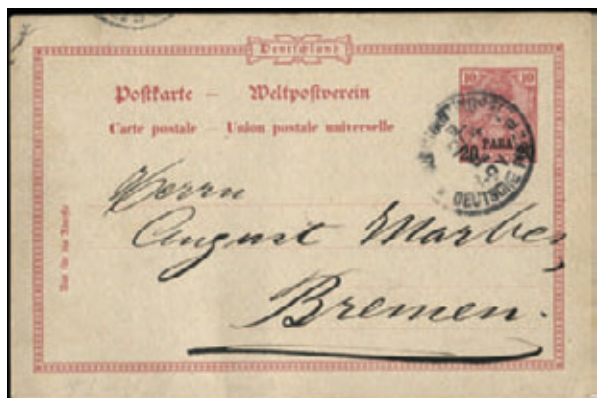 Deutschland
10 10
Postkarte – Weltpostverein
Carte postale – Union postale universelle
20 PARA
DEUTSCHE
Herrn
August
Bremen.